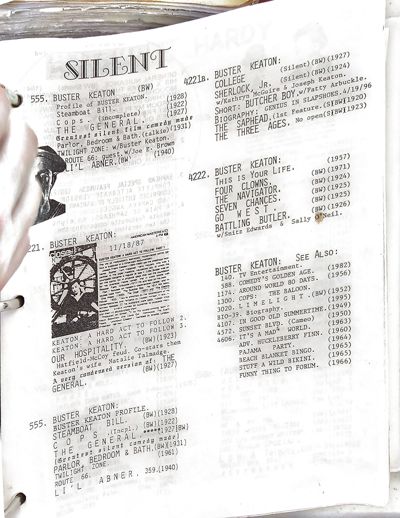 SILENT
555. BUSTER KEATON (BW)
Profile of BUSTER KEATON. (1928)
Steamboat Bill. (1922)
Cops. (incomplete) (1927)
THE GENERAL.
Greatest silent film comedy made
Parlor, Bedroom & Bath. (talkie) (1931)
TWILIGHT ZONE: w/Buster Keaton.
ROUTE 66: guest w/Joe E. Brown
LI'L ABNER. (BW) (1940)
221. BUSTER KEATON:
11/18/87
KEATON: A HARD ACT TO FOLLOW 2.
KEATON: A HARD ACT TO FOLLOW 3.
OUR HOSPITALITY. (BW) (1923)
Hatfield-McCoy feud. Co-stars then
Keaton's wife Natalie Talmadge.
A very condensed version of THE
GENERAL. (BW) (1927)
555. BUSTER KEATON:
BUSTER KEATON PROFILE.
STEAMBOAT BILL. (BW) (1928)
COPS. (Incpl.) (BW) (1922)
THE GENERAL. ***** 1927 (BW)
(Greatest silent comedy made)
PARLOR, BEDROOM & BATH. (BW) (1931)
TWILIGHT ZONE. (1961)
ROUTE 66.
LI'L ABNER. 359. (1940)
4221a. BUSTER KEATON:
COLLEGE (Silent) (BW) (1927)
SHERLOCK, Jr. (Silent) (BW) (1924)
w/Kathryn McGuire & Joseph Keaton.
SHORT: BUTCHER BOY. w/Fatty Arbuckle.
BIOGRAPHY: GENIUS IN SLAPSHOES. 4/19/96
THE SAPHEAD. (1st feature. (SI) (BW) (1920)
THE THREE AGES. No open (SI) (BW) (1923)
4222. BUSTER KEATON:
THIS IS YOUR LIFE. (1957)
FOUR CLOWNS. (1971)
THE NAVIGATOR. (BW) (1924)
SEVEN CHANCES. (BW) (1925)
GO WEST. (BW) (1925)
BATTLING BUTLER. (BW) (1926)
w/Snitz Edwards & Sally O'Neil.
BUSTER KEATON: SEE ALSO:
140. TV Entertainment.
588. COMEDY'S GOLDEN AGE. (1982)
1174. AROUND WORLD 80 DAYS. (1956)
1300. COPS: THE BALOON.
3020. LIMELIGHT. (BW) (1952)
BIO-39. Biography. (1995)
4107. IN GOOD OLD SUMMERTIME. (1949)
4572. SUNSET BLVD. (Cameo) (1950)
4606. IT'S A MAD⁴ WORLD. (1963)
ADV. HUCKLEBERRY FINN. (1960)
PAJAMA PARTY. (1964)
BEACH BLANKET BINGO. (1965)
STUFF A WILD BIKINI. (1965)
FUNNY THING TO FORUM. (1966)